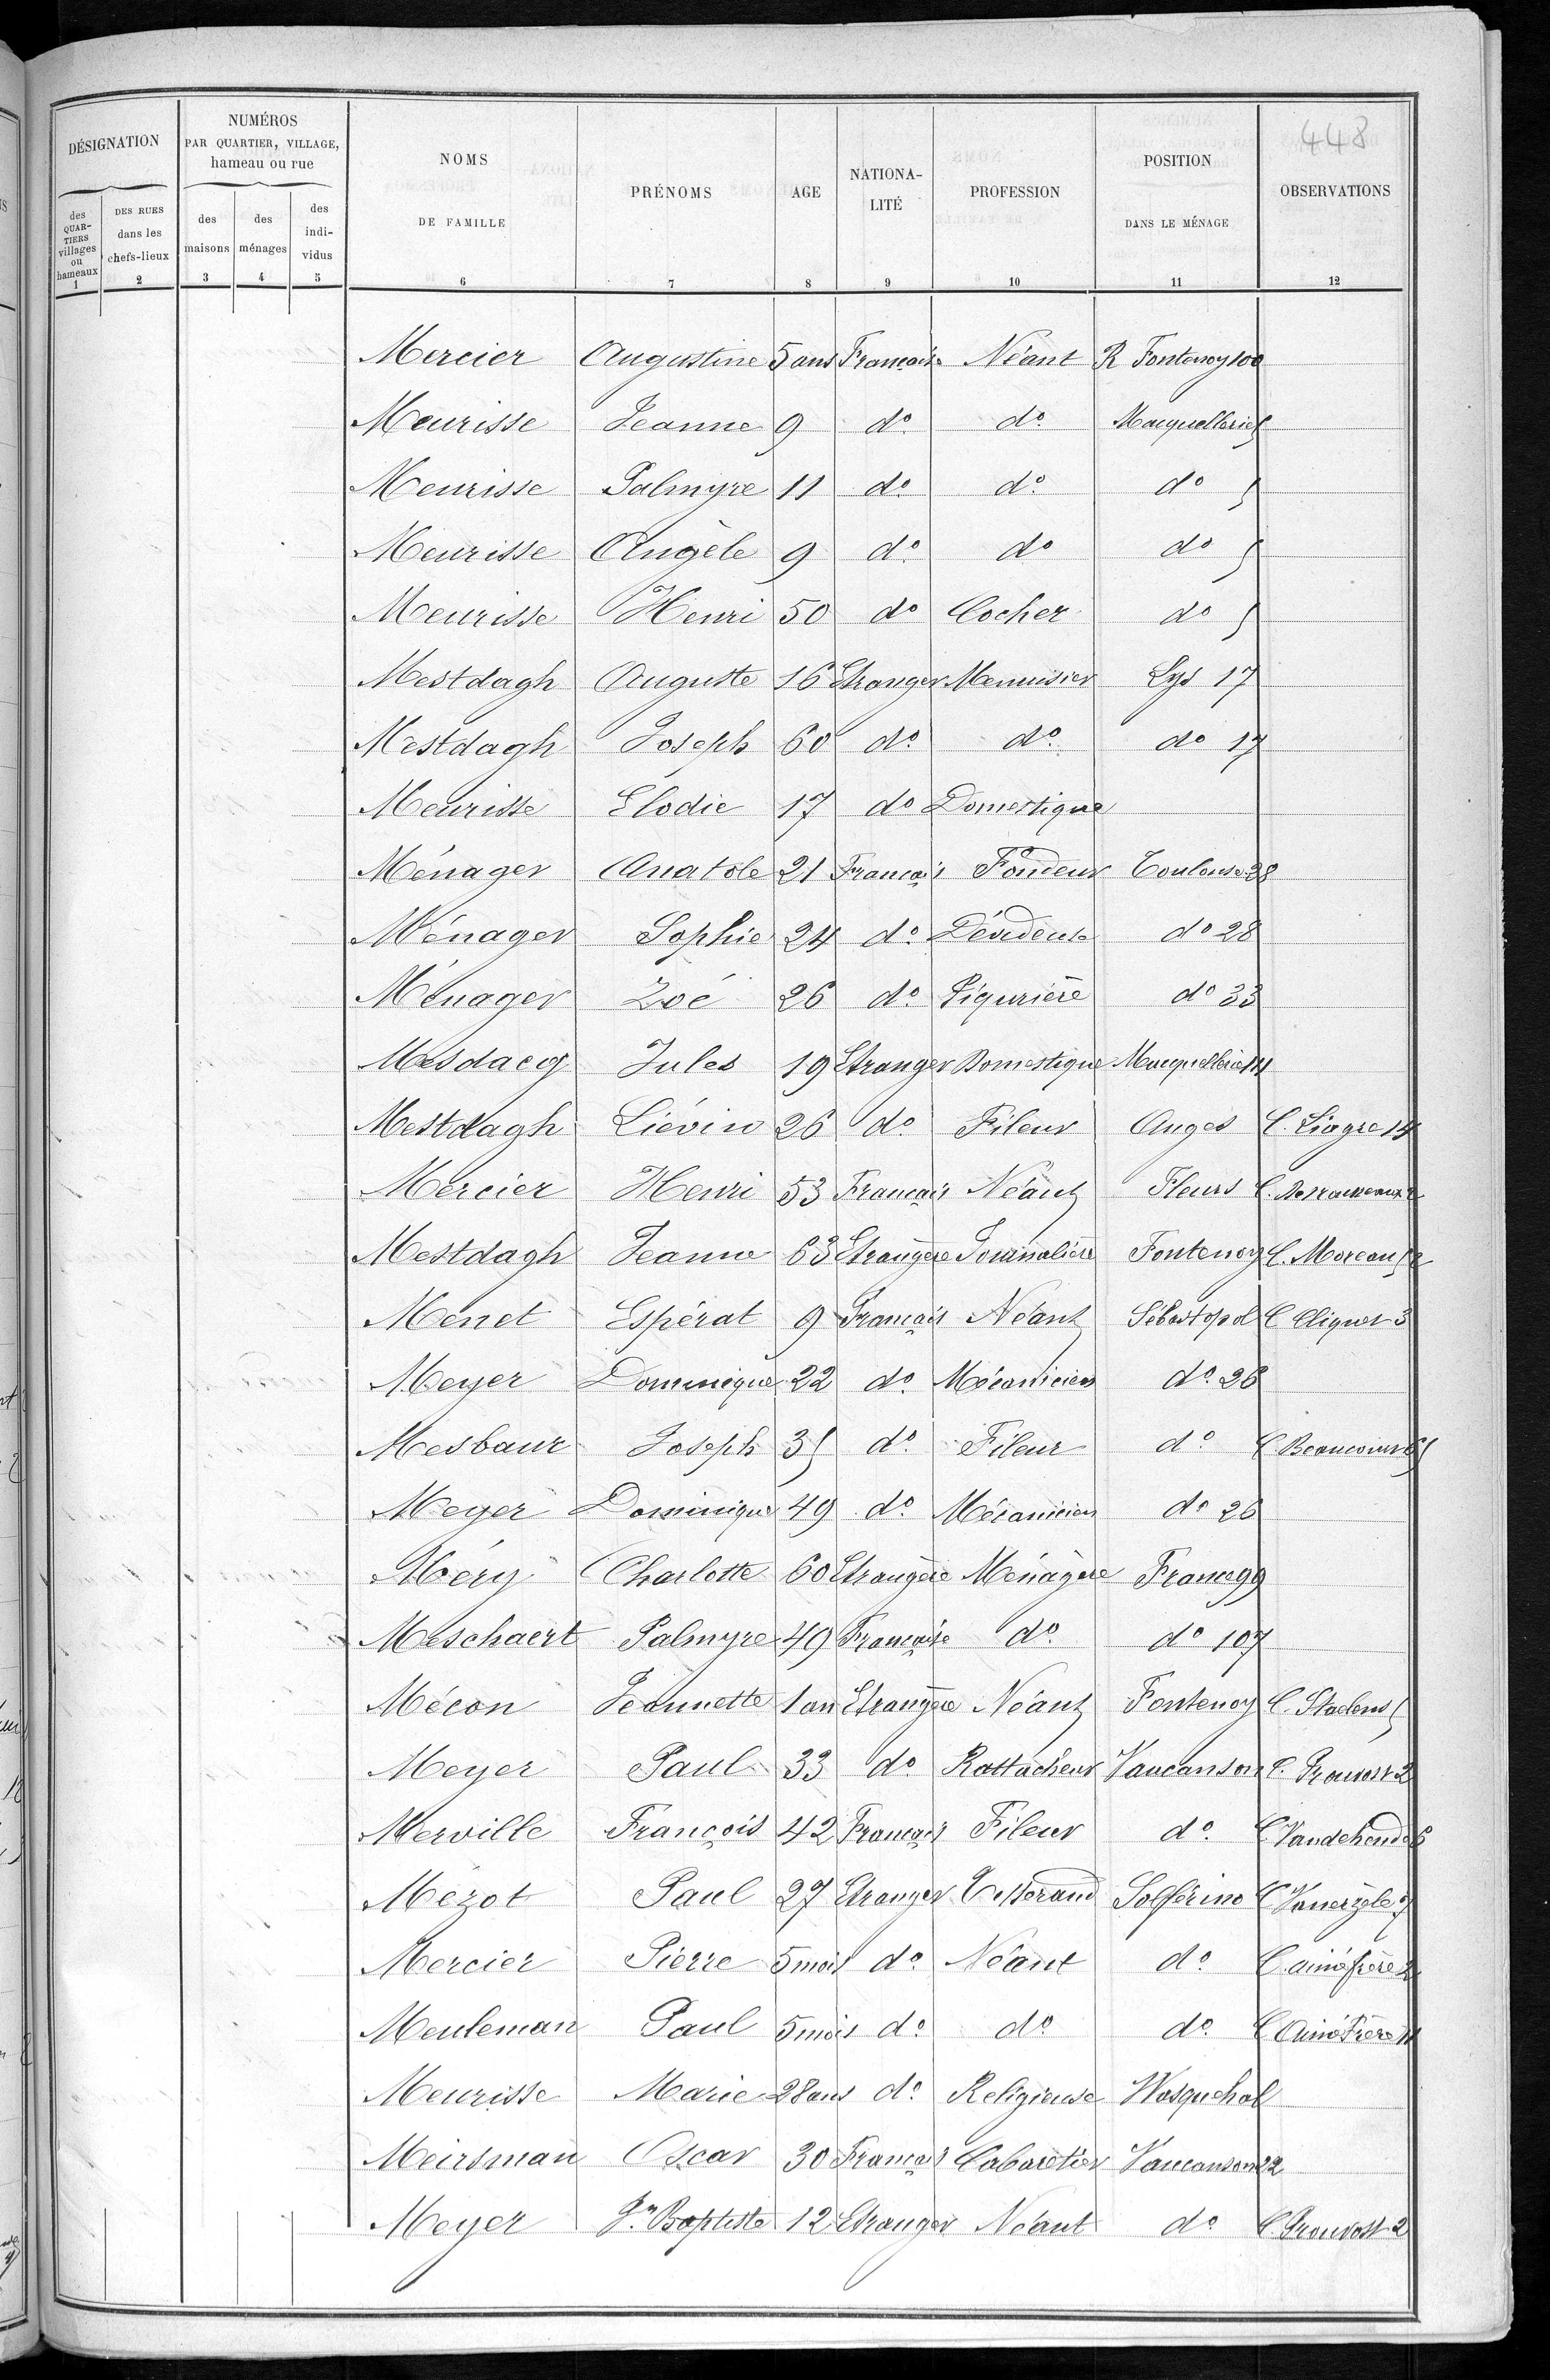 448
DÉSIGNATION
NUMÉROS PAR QUARTIER, VILLAGE, hameau ou rue
NOMS DE FAMILLE
PRÉNOMS
AGE
NATIONA-LITÉ
PROFESSION
POSITION DANS LE MÉNAGE
OBSERVATIONS
des QUAR-TIERS villages ou hameaux
DES RUES dans les chefs-lieux
des maisons
des ménages
des indi-vidus
1 2 3 4 5 6 7 8 9 10 11 12
Mercier Augustine 5 ans Française Néant R Fontenoy 100
Meurisse Jeanne 9 do do Macquellerie 5
Meurisse Palmyre 11 do do do 5
Meurisse Angèle 9 do do do 5
Meurisse Henri 50 do Cocher do 5
Mestdagh Auguste 16 Etranger Menuisier Lys 17
Mestdagh Joseph 60 do do do 17
Meurisse Elodie 17 do Domestique
Ménager Anatole 21 Français Fondeur Toulouse 28
Ménager Sophie 24 do Dévideuse do 28
Ménager Zoé 26 do Piqurière do 33
Mesdacq Jules 19 Etranger Domestique Macquellerie 111
Mestdagh Liévin 26 do Fileur Anges C. Liagre 14
Mercier Henri 53 Français Néant Fleurs C.
Mestdagh Jeanne 63 Etrangère Journalière Fontenoy C. Moreau 52
Menet Espérat 9 Français Néant Sébastopol C Cliquet 3
Meyer Dominique 22 do Mécanicien do 26
Mesbaur Joseph 35 do Fileur do C. Beaucourt 65
Meyer Dominique 49 do Mécanicien do 26
Méry Charlotte 60 Etrangère Ménagère France 99
Meschaert Palmyre 49 Française do do 107
Mécon Jeannette 1 an Etrangère Néant Fontenoy C. Stadens 5
Meyer Paul 33 do Rattacheur Vaucanson C. Prouvost 2
Merville François 42 Français Fileur do C Vandehende 6
Mézot Paul 27 Etranger Tisserand Solférino C
Mercier Pierre 5 mois do Néant do C. ainé frère 2
Meuleman Paul 5 mois do do do C Ainé Frère 11
Meurisse Marie 28 ans do Religieuse Wasquehal
Meirsman Oscar 30 Français Cabaretier Vaucanson 22
Meyer Jn Baptiste 12 Etranger Néant do C. Prouvost 2